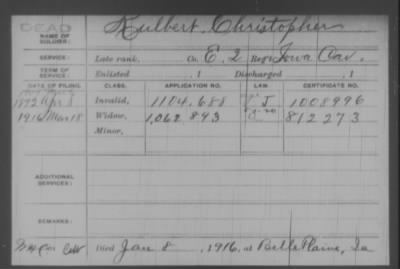 DEAD
NAME OF SOLDIER: Kulbert, Christopher
SERVICE: Late rank, Co. E. 2 Reg't Iowa Cav.
TERM OF SERVICE: Enlisted , 1 Discharged , 1
DATE OF FILING. CLASS. APPLICATION NO. LAW. CERTIFICATE NO.
1892 Apr 8 Invalid, 1104.688 J 1008996
1916 Mar 18 Widow, 1,062.893 812273
Minor,
ADDITIONAL SERVICES:
REMARKS:
Died Jan 8, 1916, at Belle Plaine, Ia